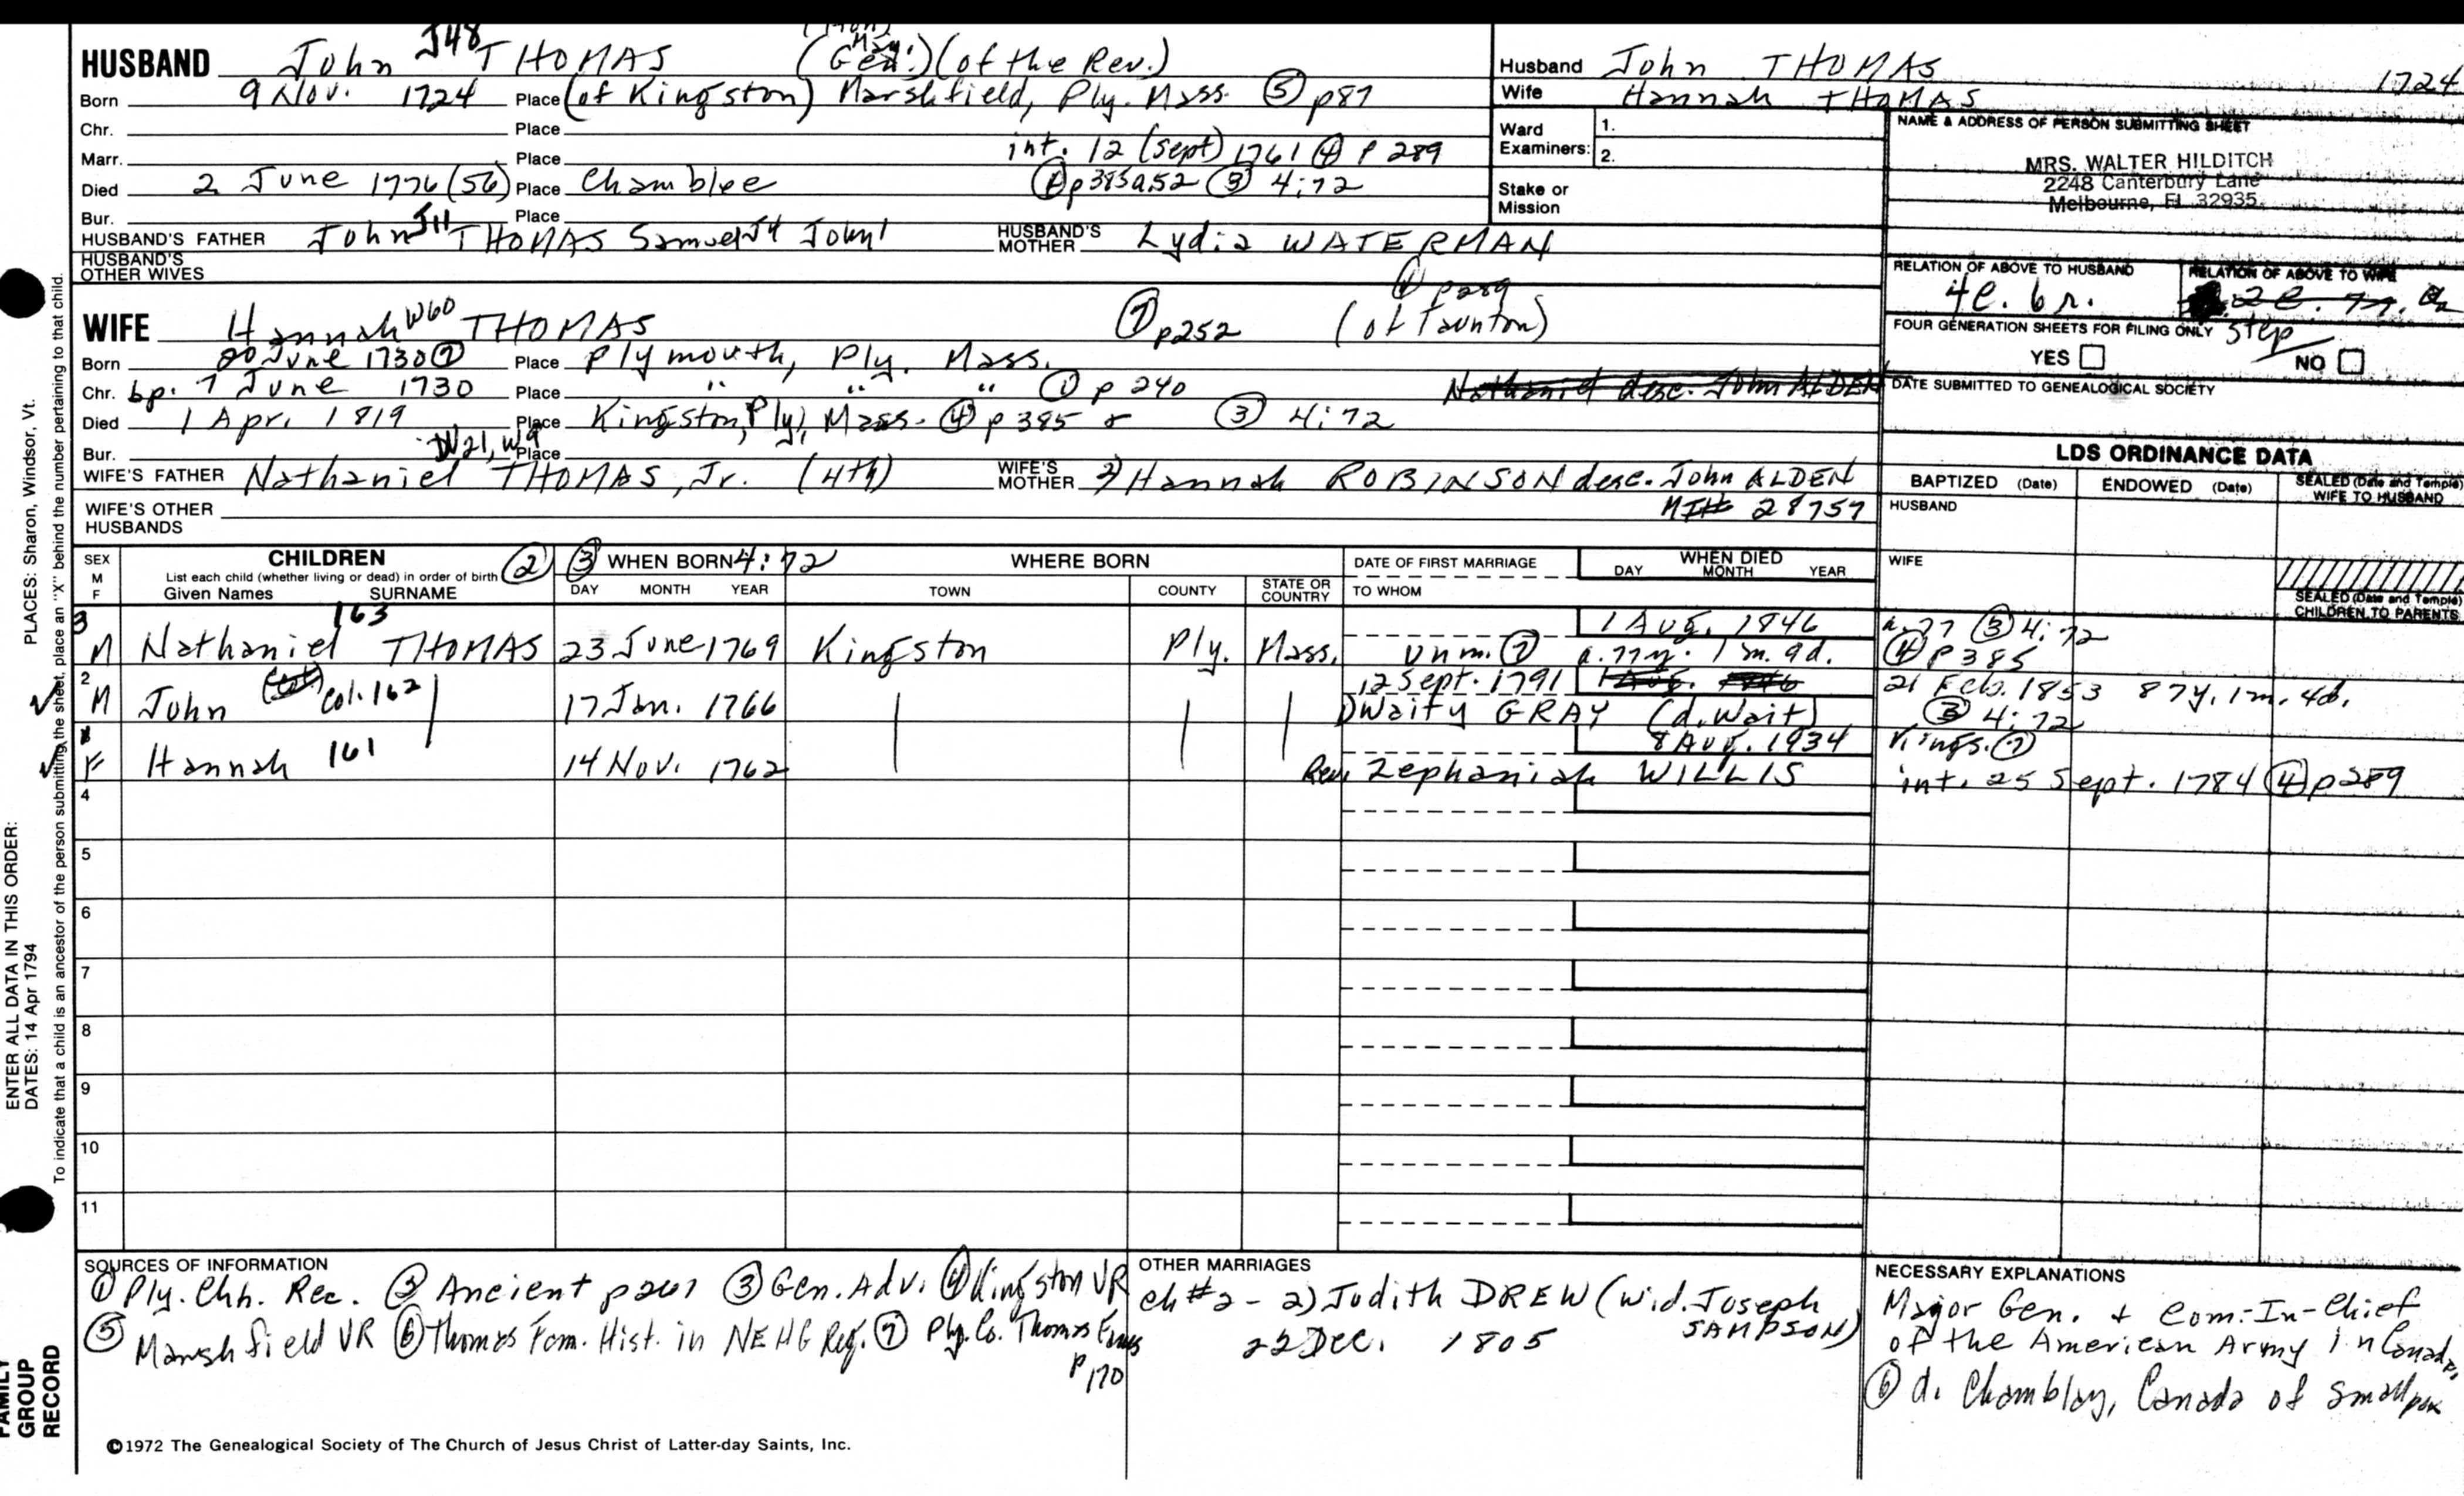 HUSBAND John J48 THOMAS (Maj. Gen.) (of the Rev.)
Born 9 Nov. 1724 Place (of Kingston) Marshfield, Ply. Mass. ⑤ p87
Chr. Place
Marr. Place int. 12 (Sept) 1761 ④ p 289
Died 2 June 1776 (56) Place Chamblee p385 a.52 ③ 4:72
Bur. Place
HUSBAND'S FATHER John J11 THOMAS Samuel J4 John1 HUSBAND'S MOTHER Lydia WATERMAN
HUSBAND'S OTHER WIVES
④ p289
WIFE Hannah W60 THOMAS ⑦ p252 (of Taunton)
Born 20 June 1730 ⑦ Place Plymouth, Ply. Mass.
Chr. bp. 7 June 1730 Place " " " ① p 240 Nathaniel desc. John ALDEN
Died 1 Apr. 1819 Place Kingston, Ply, Mass. ④ p 385 & ③ 4:72
Bur. W21, W9 Place
WIFE'S FATHER Nathaniel THOMAS, Jr. (4th) WIFE'S MOTHER 2) Hannah ROBINSON desc. John ALDEN
WIFE'S OTHER HUSBANDS 28757
Husband John THOMAS 1724
Wife Hannah THOMAS
Ward Examiners: 1.
2.
Stake or Mission
NAME & ADDRESS OF PERSON SUBMITTING SHEET
MRS. WALTER HILDITCH
2248 Canterbury Lane
Melbourne, Fl 32935
RELATION OF ABOVE TO HUSBAND RELATION OF ABOVE TO WIFE
4c. 6 r. 2c.
FOUR GENERATION SHEETS FOR FILING ONLY step
YES NO
DATE SUBMITTED TO GENEALOGICAL SOCIETY
LDS ORDINANCE DATA
BAPTIZED (Date) ENDOWED (Date) SEALED (Date and Temple) WIFE TO HUSBAND
HUSBAND
WIFE
SEALED (Date and Temple) CHILDREN TO PARENTS
SEX M F CHILDREN ② ③ WHEN BORN 4:72 WHERE BORN DATE OF FIRST MARRIAGE WHEN DIED
List each child (whether living or dead) in order of birth
Given Names SURNAME DAY MONTH YEAR TOWN COUNTY STATE OR COUNTRY TO WHOM DAY MONTH YEAR
163 1 Aug. 1846 a. 77 ③ 4:72
3 M Nathaniel THOMAS 23 June 1769 Kingston Ply. Mass. Unm. ⑦ a. 77 y. 1 m. 9 d. ④ p385
12 Sept. 1791 1 Aug. 1846 21 Feb. 1853 87y. 1m. 4d.
2 M John Col. 162 17 Jan. 1766 Waity GRAY (d. Wait) ③ 4:72
8 Aug. 1934 Kings. ⑦
F Hannah 161 14 Nov. 1762 Rev. Zephaniah WILLIS int. 25 Sept. 1784 ④ p289
4
5
6
7
8
9
10
11
SOURCES OF INFORMATION
① Ply. Chh. Rec. ② Ancient ③ Gen. Adv. ④ Kingston VR
⑤ Marshfield VR ⑥ Thomas Fam. Hist. in NEHG Reg. ⑦ Ply. Co. Thomas Fams
p170
OTHER MARRIAGES
ch #2 - 2) Judith DREW (wid. Joseph SAMPSON)
22 Dec. 1805
NECESSARY EXPLANATIONS
Major Gen. & Com-In-Chief
of the American Army in Canada.
⑥ d. Chamblay, Canada of smallpox
©1972 The Genealogical Society of The Church of Jesus Christ of Latter-day Saints, Inc.
PLACES: Sharon, Windsor, Vt.
To indicate that a child is an ancestor of the person submitting the sheet, place an "X" behind the number pertaining to that child.
ENTER ALL DATA IN THIS ORDER:
DATES: 14 Apr 1794
FAMILY
GROUP
RECORD